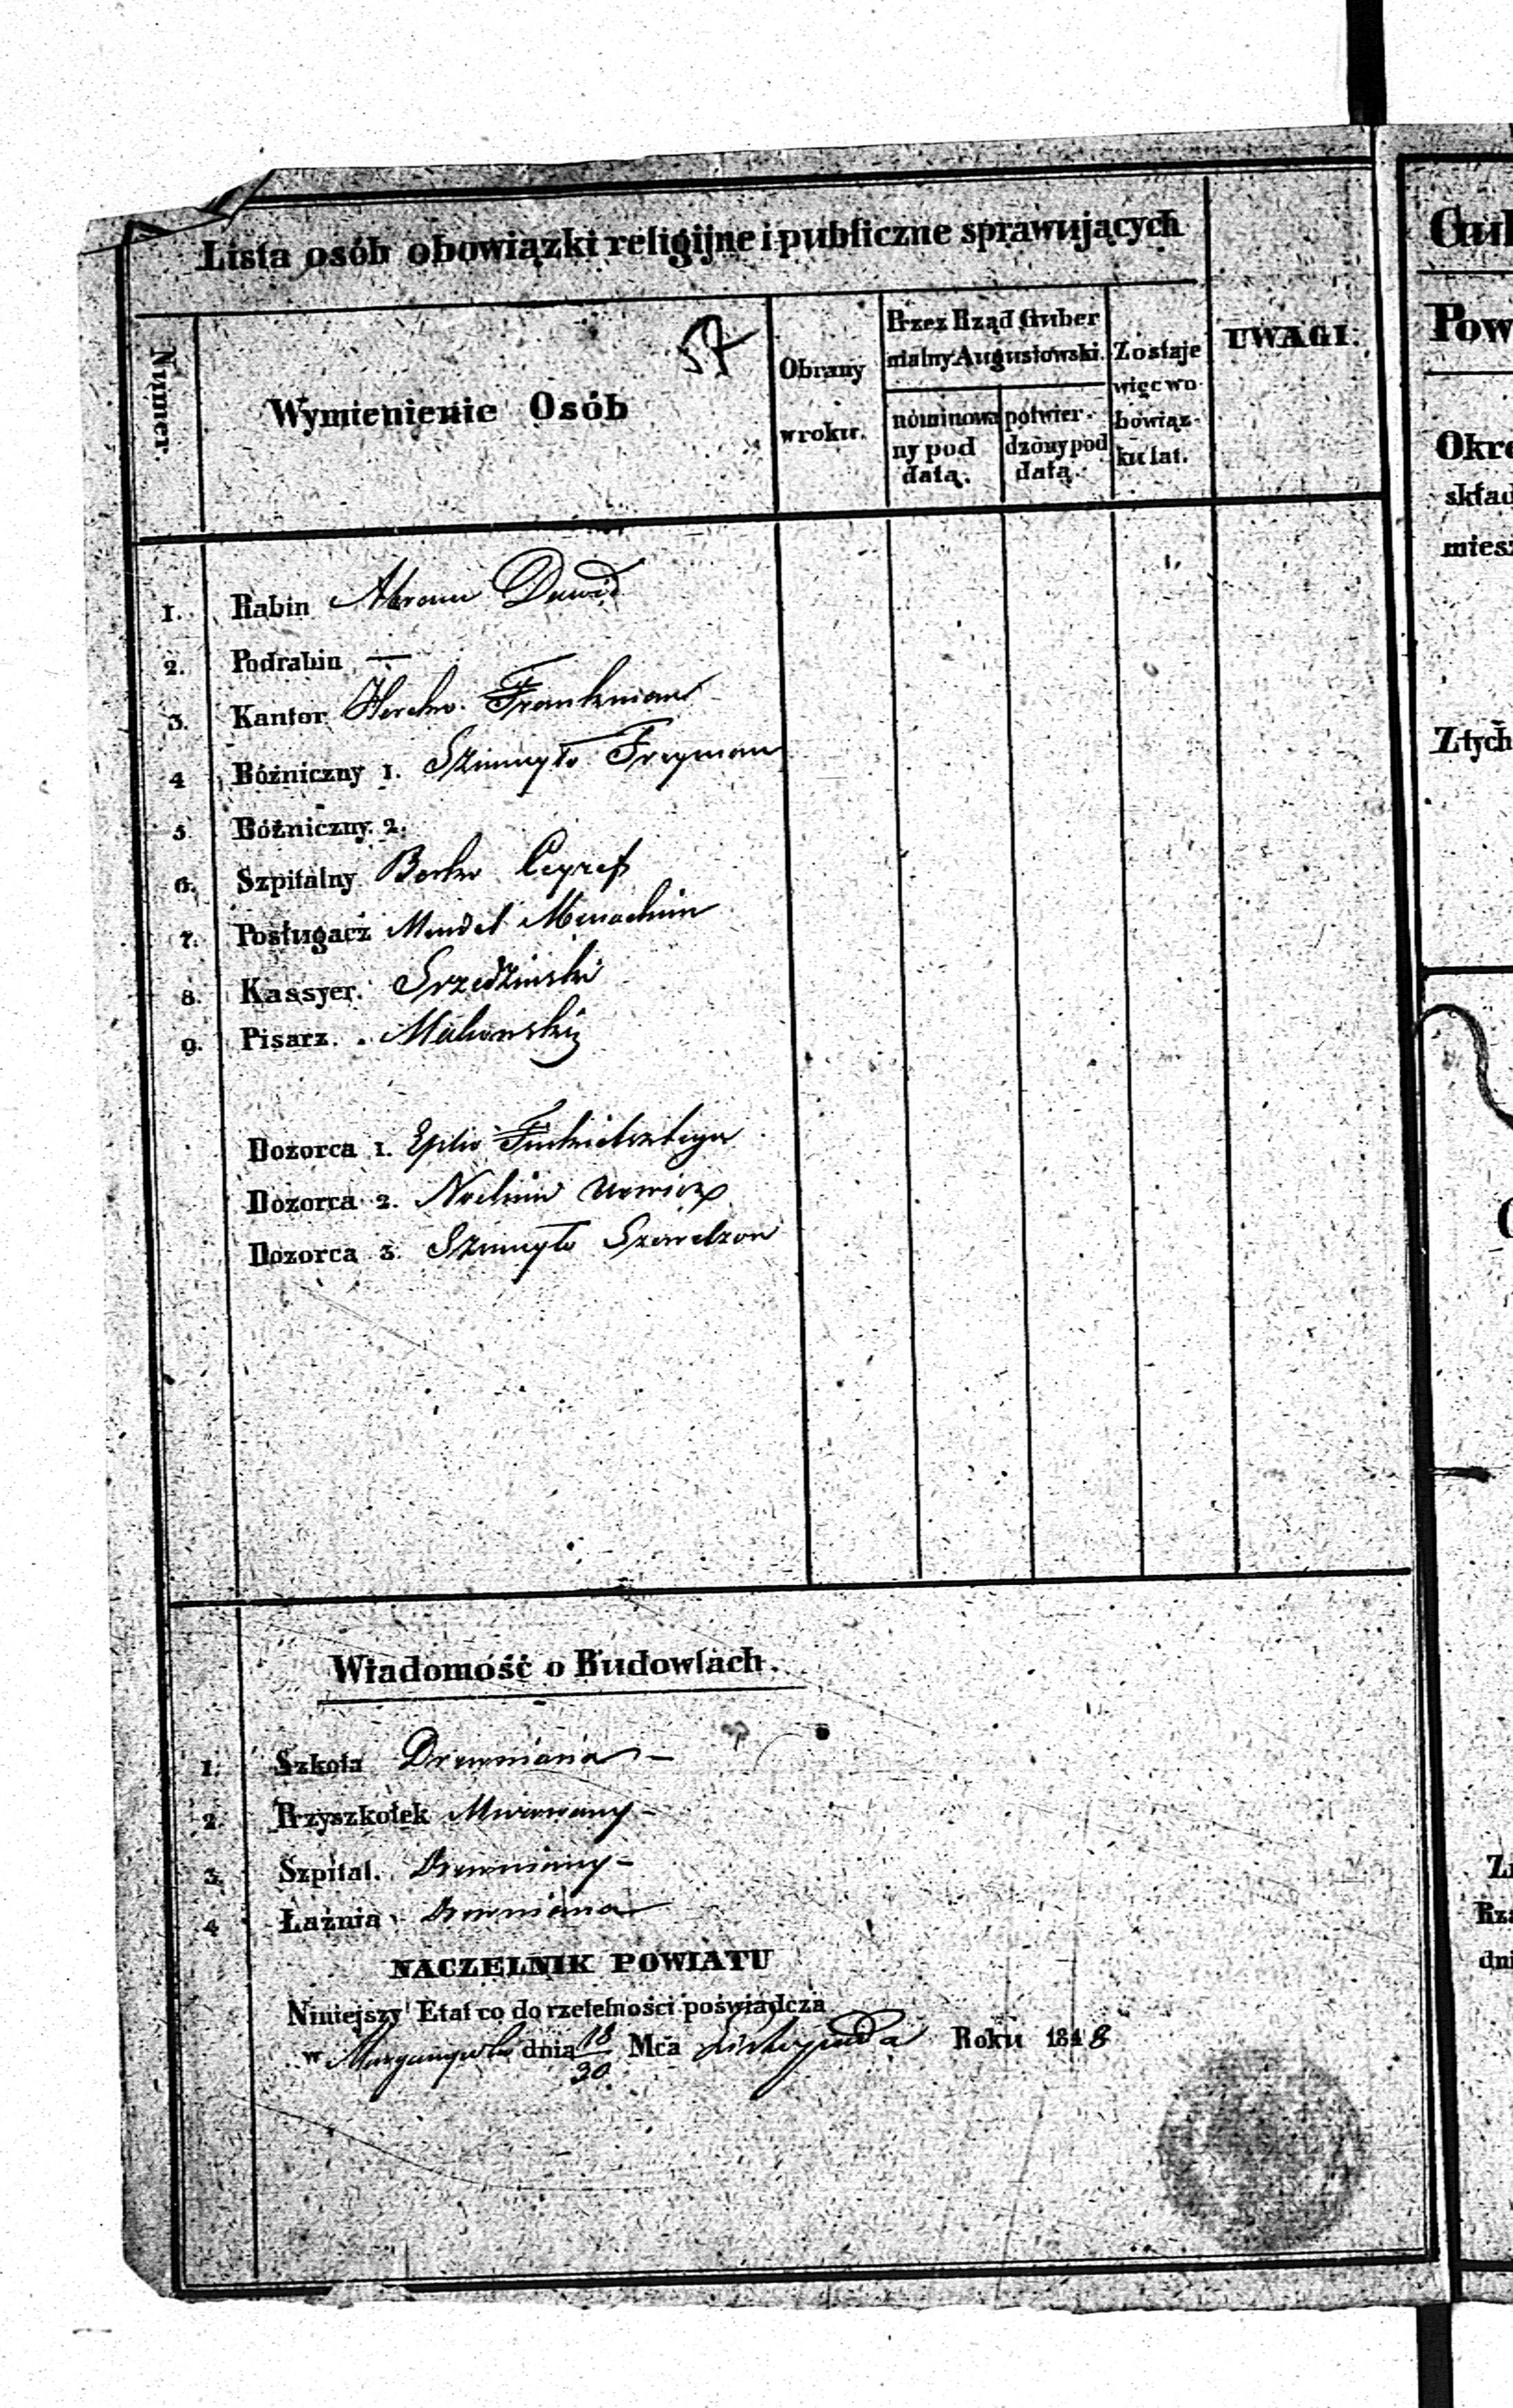 Lista osób obowiązki religijne i publiczne sprawujących
Numer.
Wymienienie Osób
57
Obrany w roku.
Przez Rząd Guber
nialny Augustowski.
nominowa
ny pod
datą.
potwier-
dzony pod
datą.
Zostaje
więc wo
bowiąz-
ku lat.
UWAGI.
1. Rabin Abram Dawid
2. Podrabin —
3. Kantor Herszko Frenkman
4 Bóźniczny 1. Szmuyło Freyman
5. Bóźniczny 2.
6. Szpitalny Berko
7. Posługacz Mendel Menachim
8. Kassyer. Srzedzinski
9. Pisarz. Makowski
Dozorca 1.
Dozorca 2. Nochim
Dozorca 3. Szmuyło
Wiadomość o Budowlach.
1. Szkoła Drewniana —
2. Przyszkołek Murowany —
3. Szpital. Drewniany —
4 Łaźnia Drewniana
NACZELNIK POWIATU
Niniejszy Etat co do rzetelności poświadcza
w dnia 18/30 Mca Listopada Roku 1848
Gub
Pow
Okre
skład
miesz
Z tych
Rza
dni